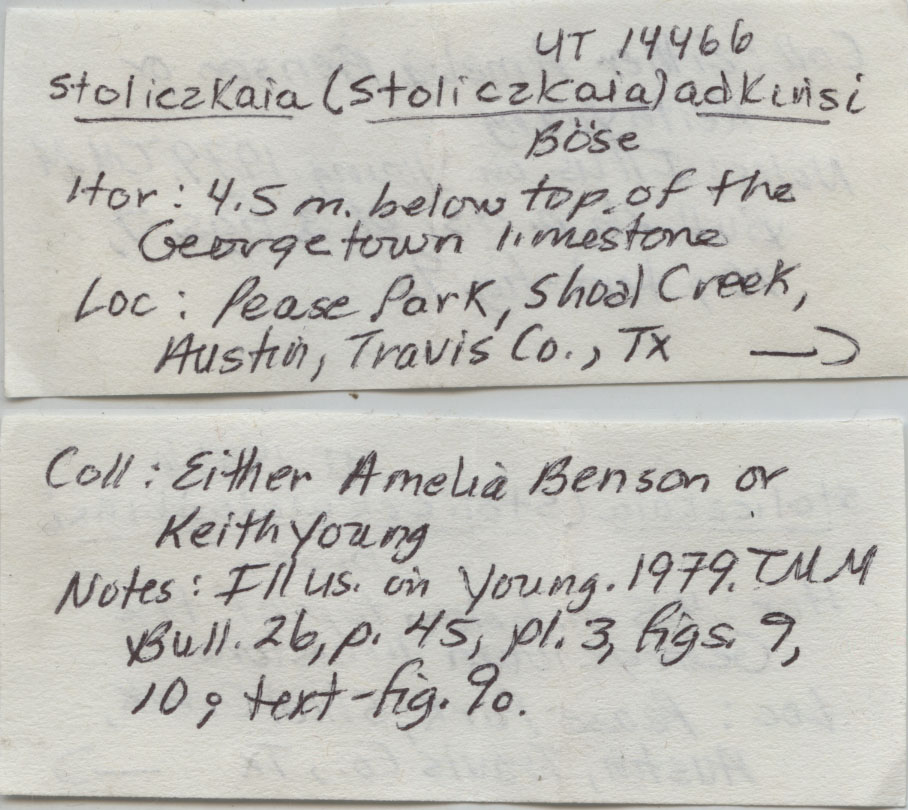 UT 14466
Stoliczkaia (Stoliczkaia) adkinsi
Böse
Hor: 4.5 m. below top of the
Georgetown limestone
Loc: Pease Park, Shoal Creek,
Austin, Travis Co., Tx →
Coll: Either Amelia Benson or
Keith Young
Notes: Illus. in Young. 1979. TMM
Bull. 26, p. 45, pl. 3, figs. 9,
10; text-fig. 9o.